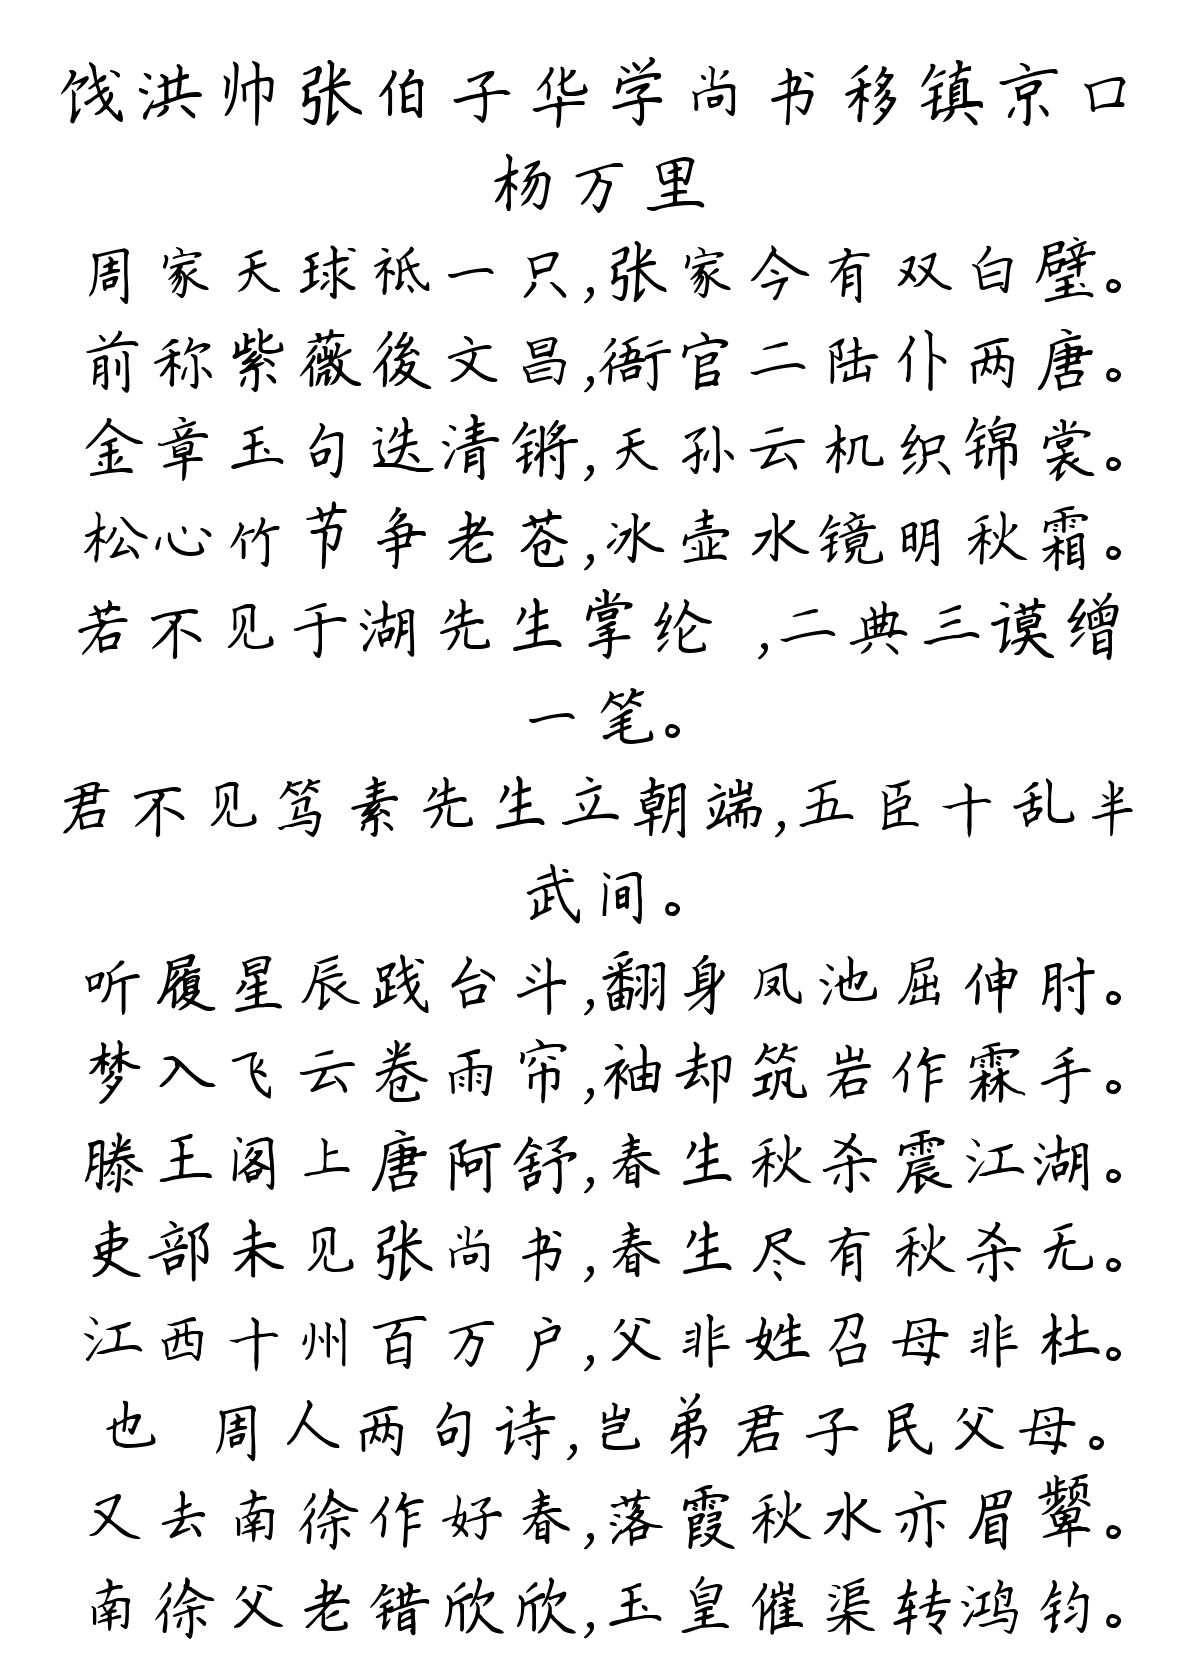 饯洪帅张伯子华学尚书移镇京口
杨万里
周家天球祗一只,张家今有双白璧。
前称紫薇後文昌,衙官二陆仆两唐。
金章玉句迭清锵,天孙云机织锦裳。
松心竹节争老苍,冰壶水镜明秋霜。
若不见于湖先生掌纶 ,二典三谟缯
一笔。
君不见笃素先生立朝端,五臣十乱半
武间。
听履星辰践台斗,翻身凤池屈伸肘。
梦入飞云卷雨帘,袖却筑岩作霖手。
滕王阁上唐阿舒,春生秋杀震江湖。
吏部未见张尚书,春生尽有秋杀无。
江西十州百万户,父非姓召母非杜。
也 周人两句诗,岂弟君子民父母。
又去南徐作好春,落霞秋水亦眉颦。
南徐父老错欣欣,玉皇催渠转鸿钧。